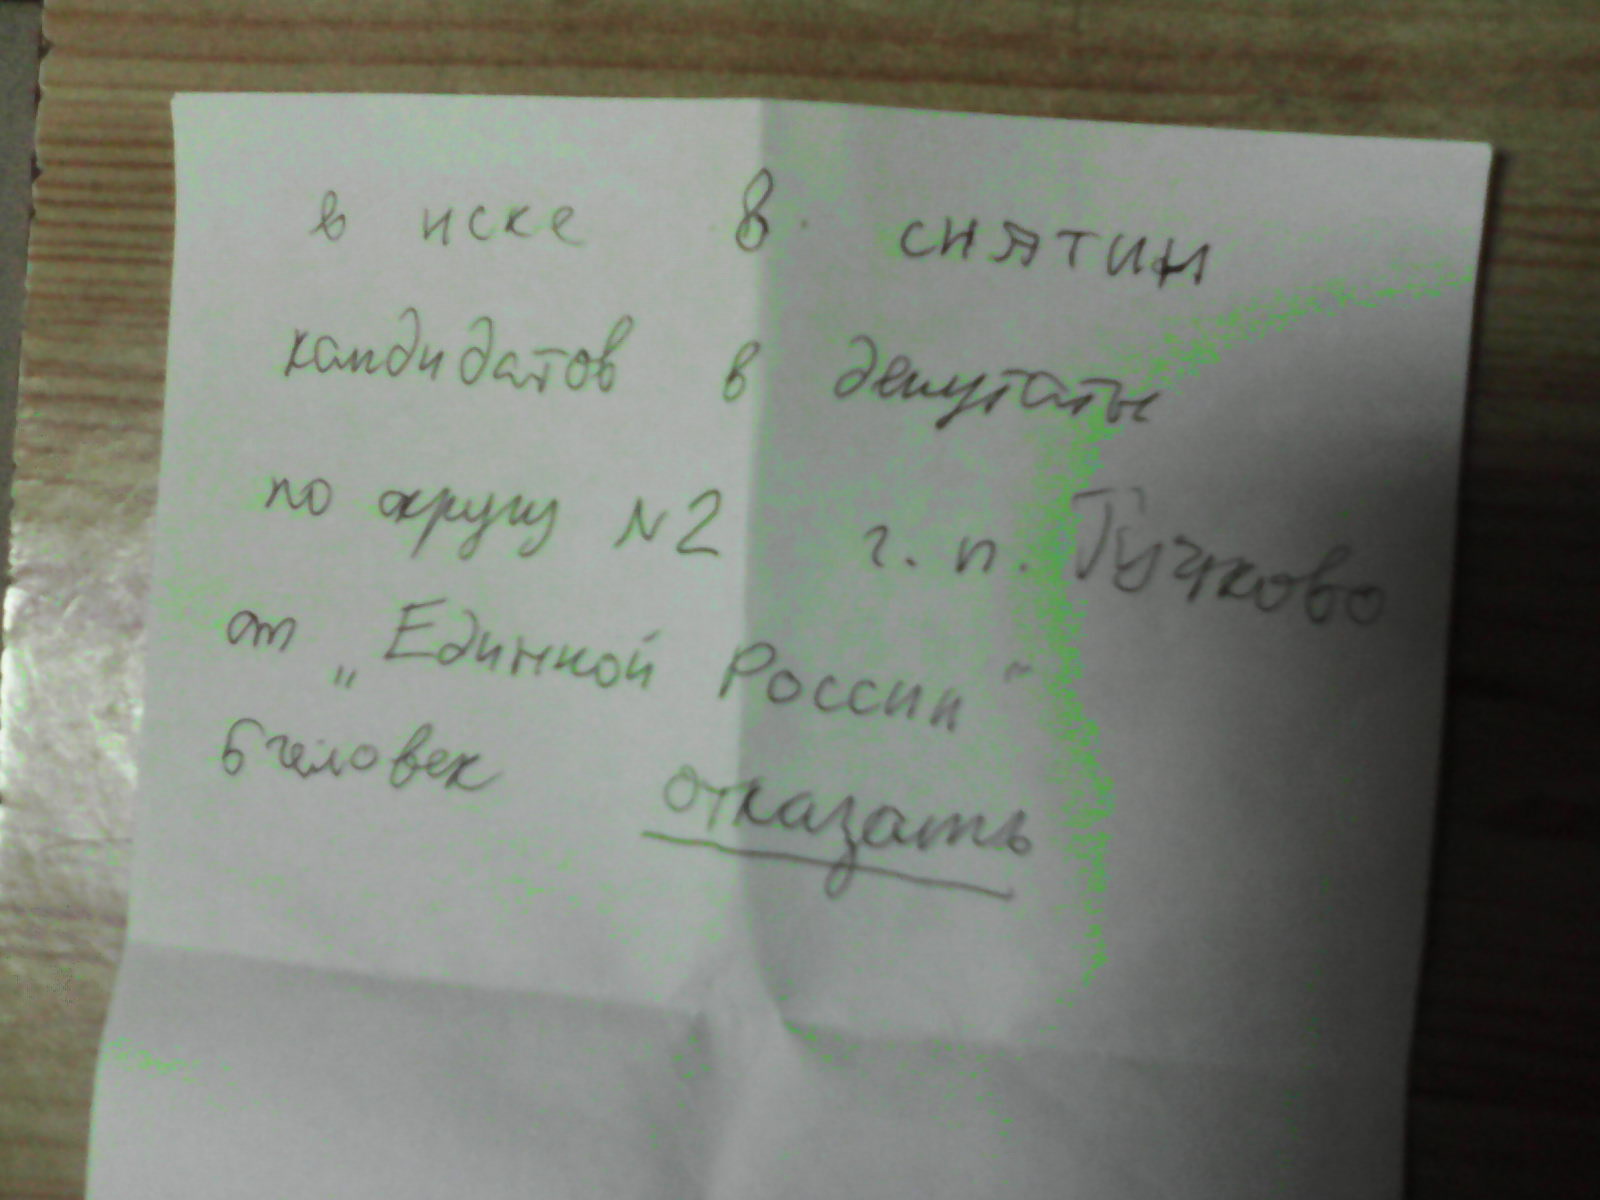 в иске в снятии
кандидатов в депутаты
по округу №2 г. п. Тучково
от „Единой России"
5 человек отказать